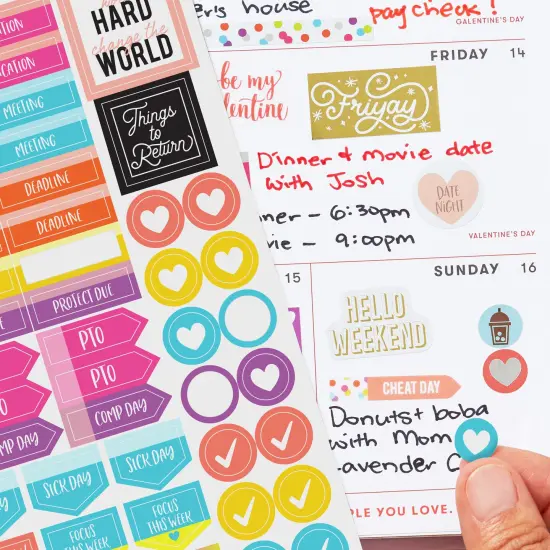 HARD
change the
WORLD
Things
to
Return
VACATION
MEETING
MEETING
DEADLINE
DEADLINE
PROJECT DUE
PTO
PTO
COMP DAY
COMP DAY
SICK DAY
SICK DAY
SICK DAY
FOCUS
THIS WEEK
FOCUS
THIS WEEK
house
pay check!
GALENTINE'S DAY
FRIDAY 14
be my
Friyay
Dinner + movie date
with Josh
DATE
NIGHT
6:30pm
9:00pm
VALENTINE'S DAY
15
SUNDAY 16
HELLO
WEEKEND
CHEAT DAY
Donuts + boba
with Mom
YOU LOVE.